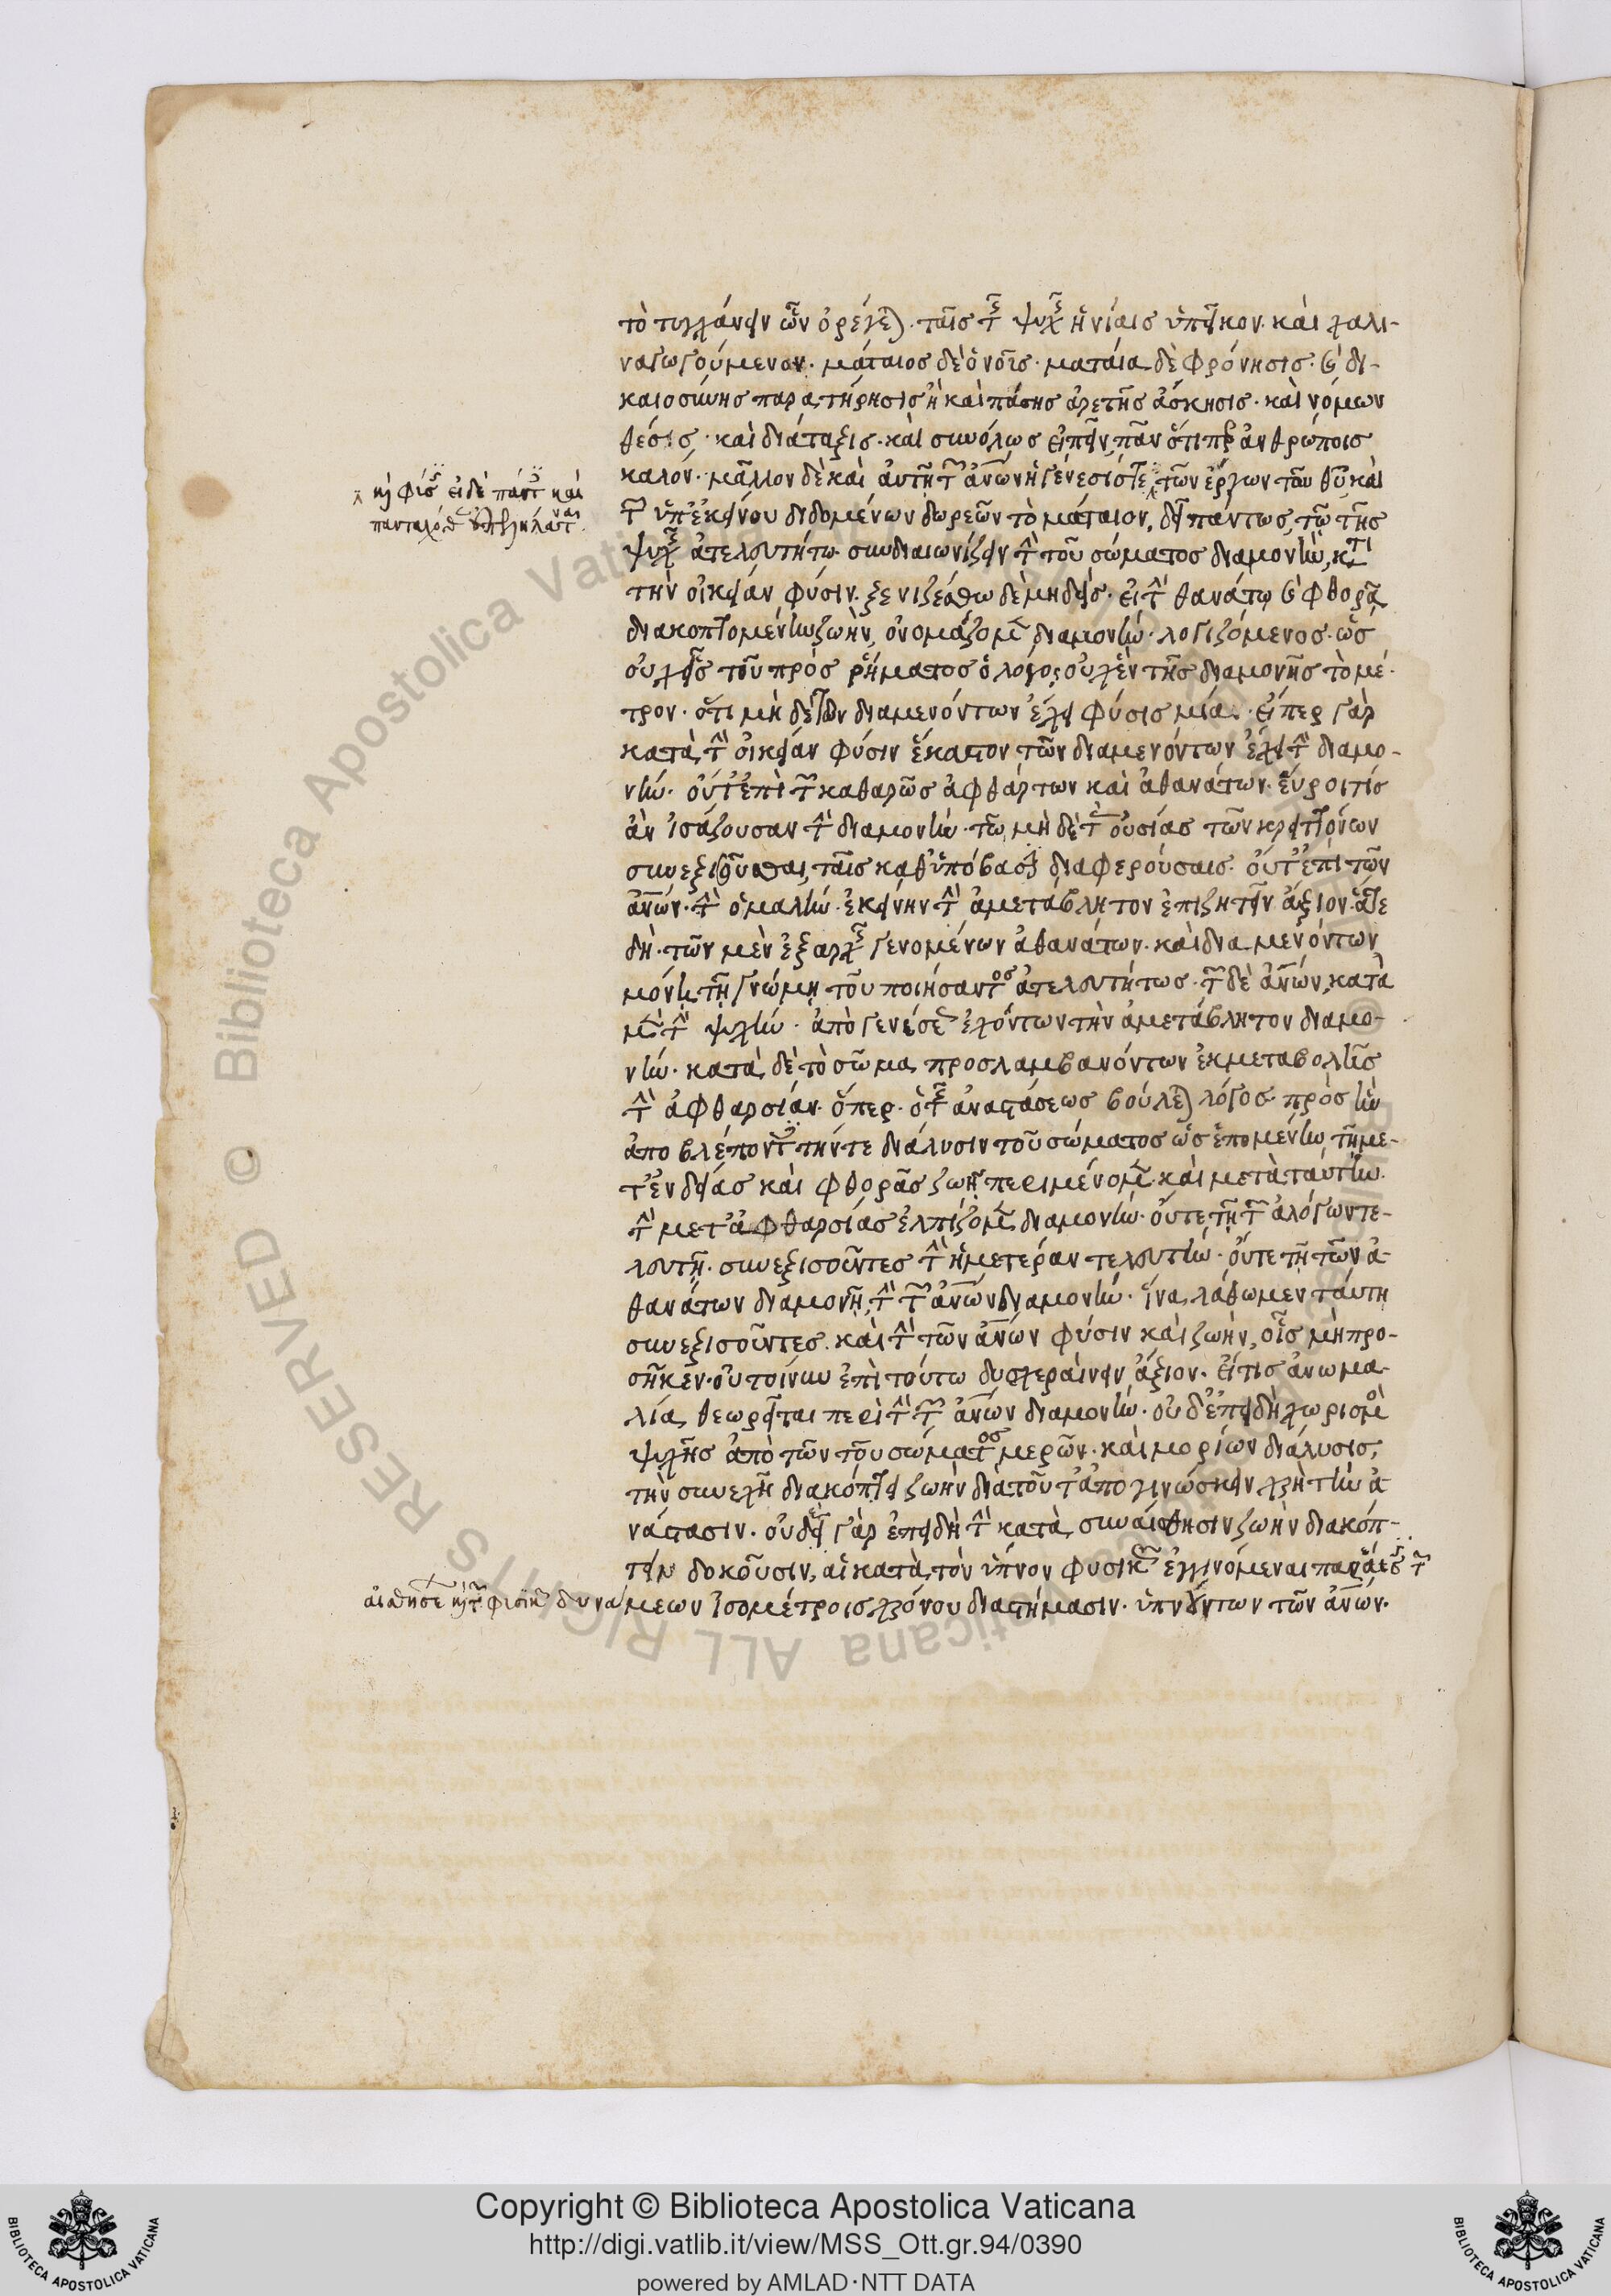 τὸ τυγχάνειν ὧν ὀρέγεται· ταῖς τῆς ψυχῆς ἡνίαις ὑπεῖκον· καὶ χαλι-
ναγωγούμενον· μάταιος δὲ ὁ νοῦς· ματαία δὲ φρόνησις· καὶ δι-
καιοσύνης παρατήρησις ἢ καὶ πάσης ἀρετῆς ἄσκησις· καὶ νόμων
θέσις· καὶ διάταξις· καὶ συνόλως εἰπεῖν πᾶν ὅτι περ ἀνθρώποις
καλόν· μᾶλλον δὲ καὶ αὐτὴ τῶν ἀνων ἡ γένεσίς τε
καὶ φύσις εἰ δὲ πάντων καὶ
πανταχόθεν
τῶν ἔργων τοῦ θυ καὶ
τῶν ὑπ' ἐκείνου διδομένων δωρεῶν τὸ μάταιον, δεῖ πάντως, τῷ τῆς
ψυχῆς ἀτελευτήτω συνδιαιωνίζειν τὴν τοῦ σώματος διαμονὴν, κατὰ
τὴν οἰκείαν φύσιν· ξενιζέσθω δὲ μηδεὶς· εἰ τὴν θανάτῳ καὶ φθορᾷ
διακοπτομένην ζωὴν, ὀνομάζομεν διαμονὴν· λογιζόμενος· ὡς
οὐχ εἷς τοῦ προσρήματος ὁ λόγος· οὐχ ἓν τῆς διαμονῆς τὸ μέ-
τρον· ὅτι μὴ δὲ τῶν διαμενόντων φύσις μία· εἴπερ γὰρ
κατὰ τὴν οἰκείαν φύσιν ἕκαστον τῶν διαμενόντων ἔχει τὴν διαμο-
νὴν· οὔτ' ἐπὶ τῶν καθαρῶς ἀφθάρτων καὶ ἀθανάτων· εὕροι τίς
ἂν ἰσάζουσαν τὴν διαμονὴν· τῷ μὴ δὲ τὰς οὐσίας τῶν κρειττόνων
συνεξισοῦσθαι, ταῖς καθ' ὑπόβασιν διαφερούσαις· οὔτ' ἐπὶ τῶν
ἀνων· τὴν ὁμαλὴν· ἐκείνην τὴν ἀμετάβλητον ἐπιζητεῖν ἄξιον· ἅτε
δὴ· τῶν μὲν ἐξ ἀρχῆς γενομένων ἀθανάτων· καὶ διαμενόντων
μόνῃ τῇ γνώμῃ τοῦ ποιήσαντος ἀτελευτήτως· τῶν δὲ ἀνων, κατὰ
μὲν τὴν ψυχὴν· ἀπὸ γενέσεως ἐχόντων τὴν ἀμετάβλητον διαμο-
νὴν· κατὰ δὲ τὸ σῶμα προσλαμβανόντων ἐκ μεταβολῆς
τὴν ἀφθαρσίαν· ὅπερ· ὁ τῆς ἀναστάσεως βούλεται λόγος· πρὸς ἣν
ἀποβλέποντες τήν τε διάλυσιν τοῦ σώματος ὡς ἑπομένην τῇ με-
τ' ἐνδείας καὶ φθορᾶς ζωῇ περιμένομεν· καὶ μετὰ ταύτην
τὴν μετ' ἀφθαρσίας ἐλπίζομεν διαμονὴν· οὔτε τῇ τῶν ἀλόγων τε-
λευτῇ· συνεξισοῦντες τὴν ἡμετέραν τελευτὴν· οὔτε τῇ τῶν ἀ-
θανάτων διαμονῇ, τὴν τῶν ἀνων διαμονὴν· ἵνα λάθωμεν ταύτη
συνεξισοῦντες· καὶ τὴν τῶν ἀνων φύσιν καὶ ζωὴν, οἷς μὴ προ-
σῆκεν· οὐ τοίνυν ἐπὶ τούτω δυσχεραίνειν ἄξιον· εἴ τις ἀνωμα-
λία θεωρεῖται περὶ τὴν τῶν ἀνων διαμονὴν· οὐδ' ἐπειδὴ χωρισμὸς
ψυχῆς ἀπὸ τῶν τοῦ σώματος μερῶν· καὶ μορίων διάλυσις,
τὴν συνεχῆ διακόπτει ζωὴν διὰ τοῦτ' ἀπογινώσκειν χρὴ τὴν ἀ-
νάστασιν· οὐδὲ γὰρ ἐπειδὴ τὴν κατὰ συναίσθησιν ζωὴν διακόπ-
τειν δοκοῦσιν, αἱ κατὰ τὸν ὕπνον φυσικῶς ἐγγινόμεναι παρέσεις τῶν
αἰσθήσεων καὶ τῶν φυσικῶν δυνάμεων ἰσομέτροις χρόνου διαστήμασιν· ὑπνούντων τῶν ἀνων·
Copyright © Biblioteca Apostolica Vaticana
http://digi.vatlib.it/view/MSS_Ott.gr.94/0390
powered by AMLAD·NTT DATA
BIBLIOTECA APOSTOLICA VATICANA
BIBLIOTECA APOSTOLICA VATICANA